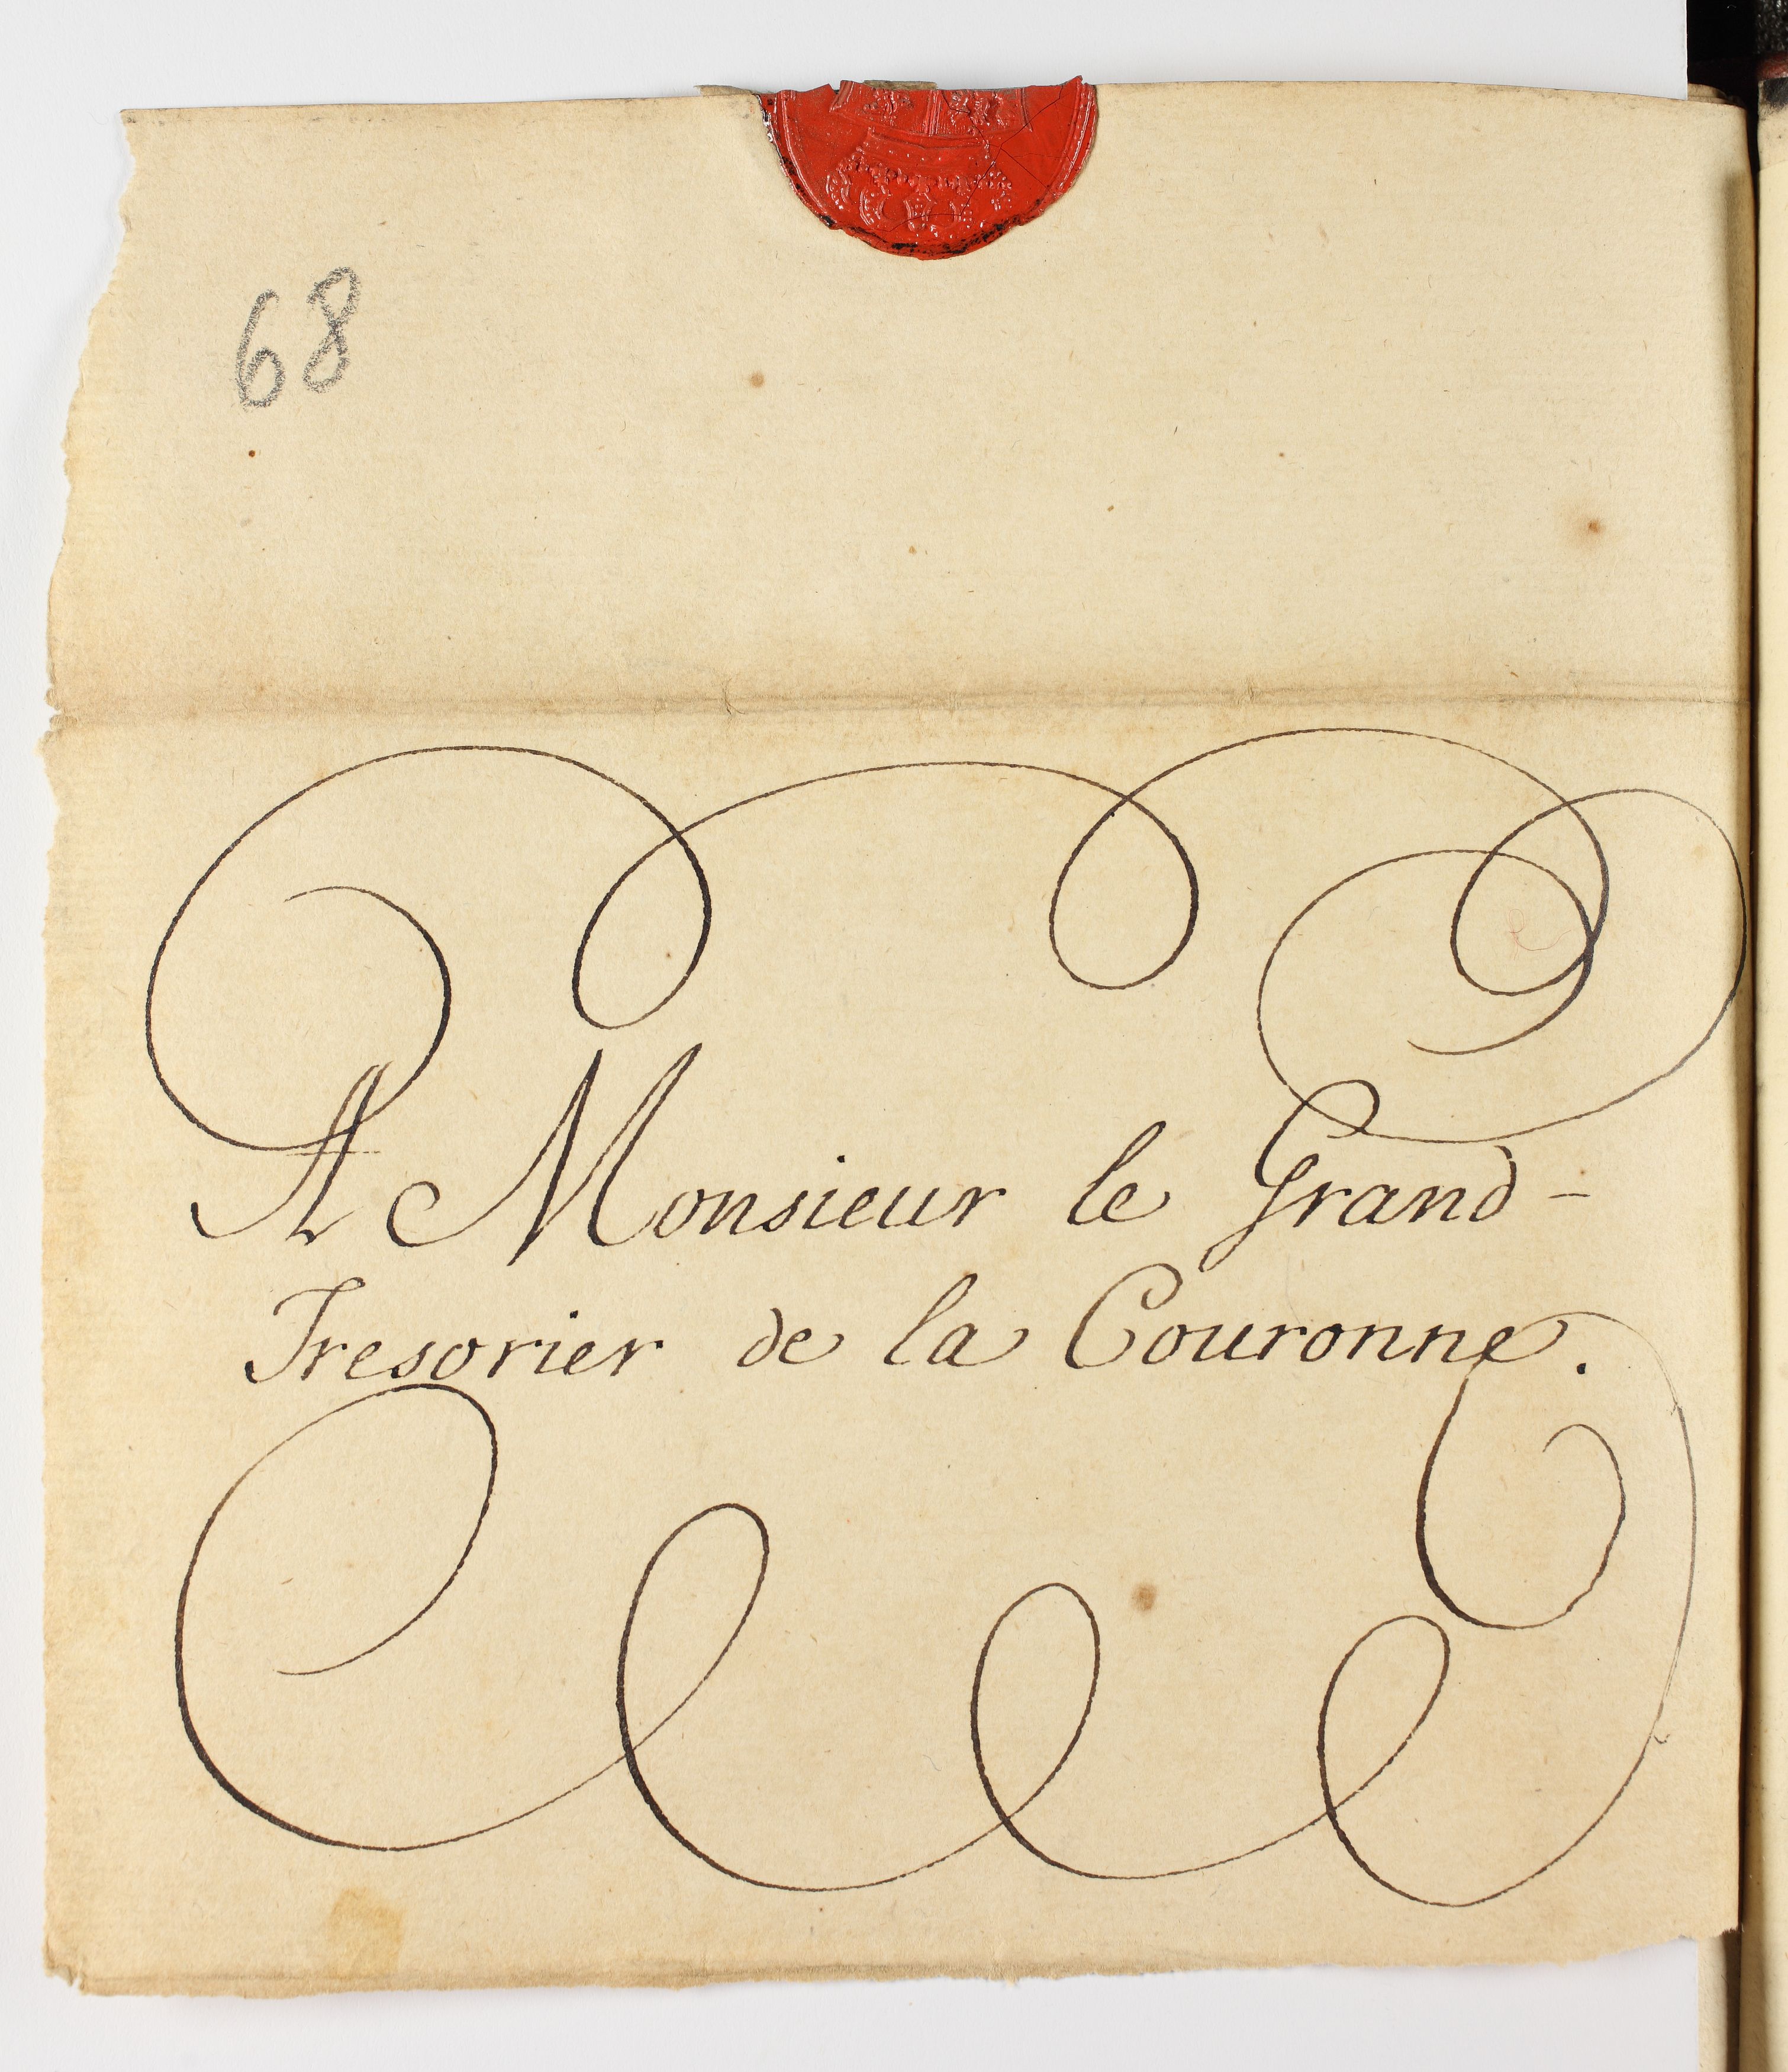 68
A Monsieur le Grand-
Tresorier de la Couronne.